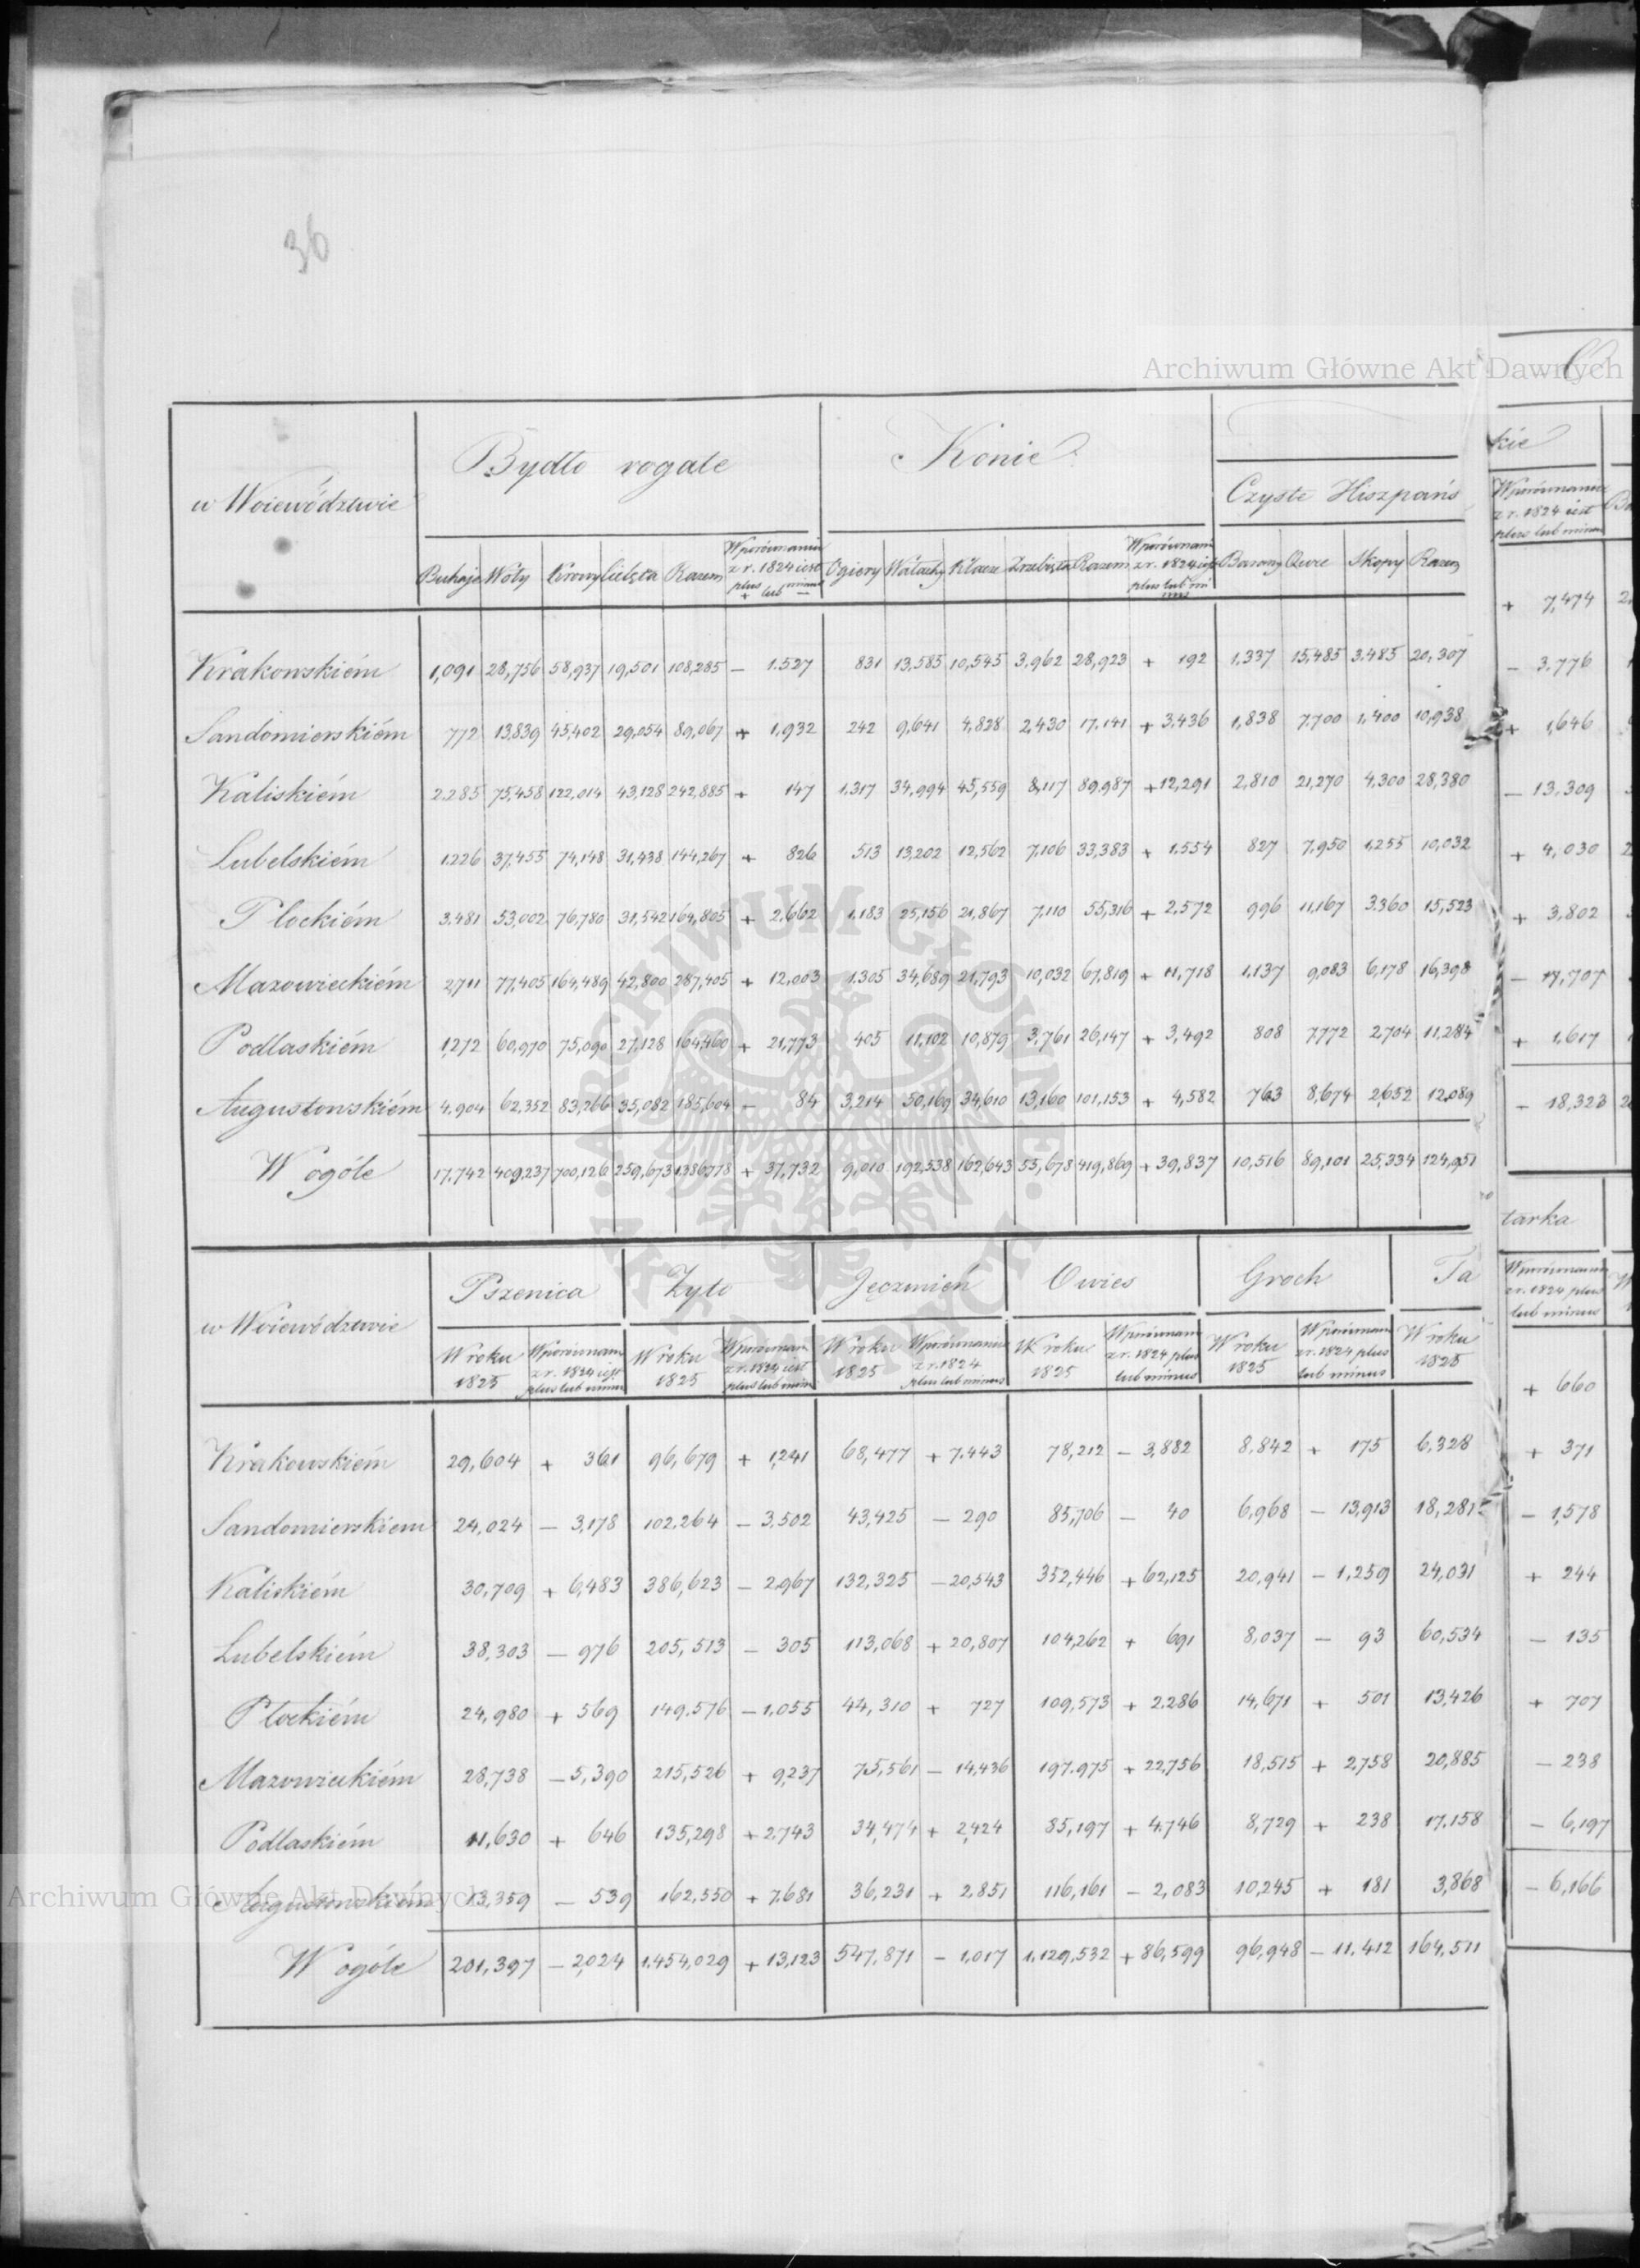 36
Archiwum Główne Akt Dawnych
w Woiewództwie
Bydło rogate
Konie
Czyste Hiszpańs
kie
Buhaje Woły Krowy Cielęta Razem W porównaniu z r. 1824 iest plus + lub minus — Ogiery Wałachy Klacze Zrebięta Razem W porównani z r. 1824 iest plus lub mi nus Barany Owce Skopy Razem
W porównaniu z r. 1824 iest plus lub minus
Krakowskiém 1,091 28,756 58,937 19,501 108,285 — 1.527 831 13,585 10,545 3,962 28,923 + 192 1,337 15,485 3,485 20,307
Sandomierskiém 772 13,839 45,402 29,054 89,067 + 1,932 242 9,641 4,828 2,430 17,141 + 3,436 1,838 7,700 1,400 10,938
Kaliskiém 2.285 75,458 122,014 43,128 242,885 + 147 1.317 34,994 45,559 8,117 89,987 + 12,291 2,810 21,270 4,300 28,380
Lubelskiém 1.226 37,455 74,148 31,438 144,267 + 826 513 13,202 12,562 7.106 33,383 + 1.554 827 7.950 1.255 10,032
Płockiém 3.481 53,002 76,780 31,542 164,805 + 2,662 1.183 25,156 21,867 7.110 55,316 + 2,572 996 11,167 3.360 15,523
Mazowieckiém 2,711 77,405 164,489 42,800 287,405 + 12,003 1.305 34,689 21,793 10,032 67,819 + 11,718 1,137 9,083 6,178 16,398
Podlaskiém 1,272 60,970 75,090 27,128 164,460 + 21,773 405 11,102 10,879 3,761 26,147 + 3,492 808 7,772 2,704 11,284
Augustowskiém 4.904 62,352 83,266 35,082 185,604 — 84 3,214 50,169 34,610 13,160 101,153 + 4,582 763 8,674 2,652 12,089
W ogóle 17,742 409,237 700,126 259,673 1,386,778 + 37,732 9,010 192,538 162,643 55,678 419,869 + 39,837 10,516 89,101 25,334 124,951
+ 7,474
— 3.776
+ 1,646
— 13.309
+ 4,030
+ 3,802
— 17,707
+ 1,617
— 18,323
w Woiewództwie
Pszenica Żyto Jęczmień Owies Groch Ta
tarka
W roku 1825 W porównan z r. 1824 iest plus lub minus W roku 1825 W porównan z r. 1824 iest plus lub min W roku 1825 W porównaniu z r. 1824 plus lub minus W roku 1825 W porównani z r. 1824 plus lub minus W roku 1825 W porównan z r. 1824 plus lub minus W roku 1825
W porównaniu z r. 1824 plus lub minus
Krakowskiém 29,604 + 361 96,679 + 1,241 68,477 + 7.443 78,212 — 3,882 8,842 + 175 6,328
Sandomierskiem 24,024 — 3,178 102.264 — 3,502 43,425 — 290 85,706 — 40 6,968 — 13,913 18,281
Kaliskiém 30,709 + 6,483 386,623 — 2,967 132,325 — 20,543 352,446 + 62,125 20,941 — 1,259 24,031
Lubelskiém 38,303 — 976 205,513 — 305 113,068 + 20,807 104,262 + 691 8,037 — 93 60,534
Płockiém 24,980 + 569 149.576 — 1.055 44,310 + 727 109,573 + 2.286 14,671 + 501 13,426
Mazowieckiém 28,738 — 5,390 215,526 + 9,237 75,561 — 14,436 197.975 + 22,756 18,515 + 2,758 20,885
Podlaskiém 11,630 + 646 135,298 + 2.743 34,474 + 2,424 85,197 + 4.746 8,729 + 238 17.158
Augustowskiém 13,359 — 539 162,550 + 7.681 36,231 + 2,851 116,161 — 2,083 10,245 + 181 3,868
W ogóle 201,397 — 2,024 1.454,029 + 13,123 547,871 — 1,017 1,129,532 + 86,599 96,948 — 11,412 164,511
+ 660
+ 371
— 1,578
+ 244
— 135
+ 707
— 238
— 6,197
— 6,166
ARCHIWUM GŁÓWNE AKT DAWNYCH
Archiwum Główne Akt Dawnych